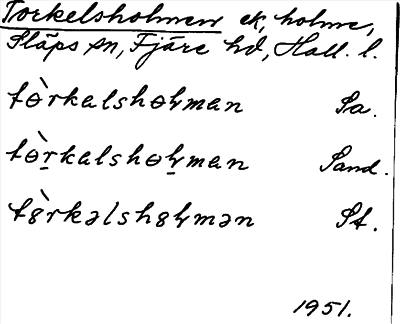 Torkelsholmen ek, holme,
Släps sn, Fjäre hd, Hall. l.
tɵ̀rkalshɵɫman Sa.
tɵ̀rkalshɵɫman Sand.
t8̀rkəlsh8ɫmən St.
1951.